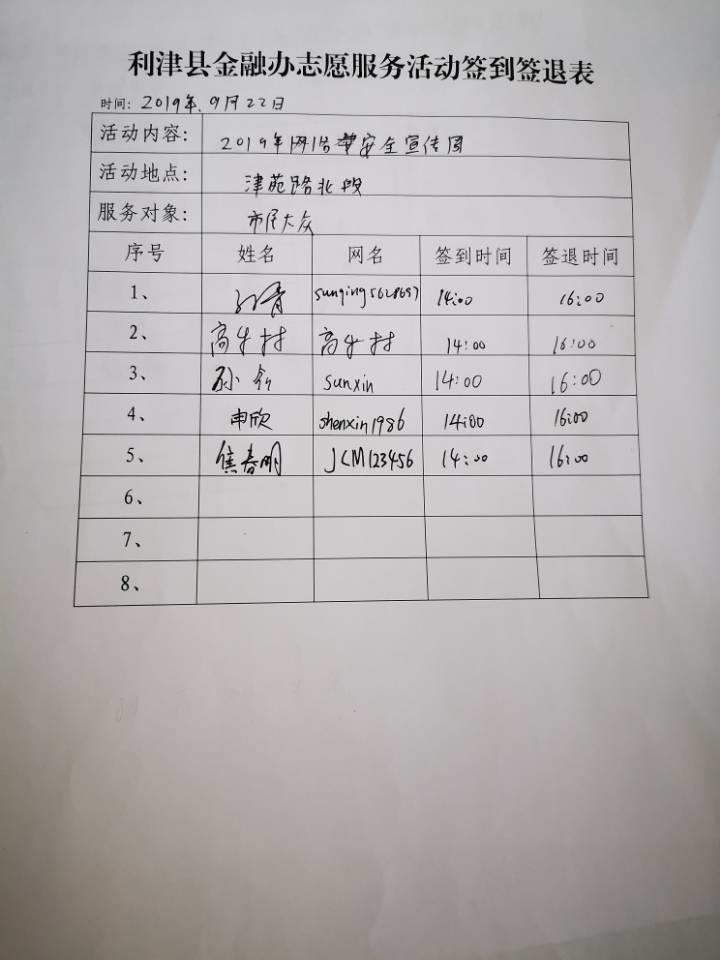 利津县金融办志愿服务活动签到签退表
时间：2019年.9月22日
活动内容： 2019年网络安全宣传周
活动地点： 津苑路北段
服务对象： 市民大众
序号 姓名 网名 签到时间 签退时间
1、 孙青 14:00 16:00
2、 14:00 16:00
3、 sunxin 14:00 16:00
4、 申欣 shenxin1986 14:00 16:00
5、 焦春明 JCM123456 14:00 16:00
6、
7、
8、